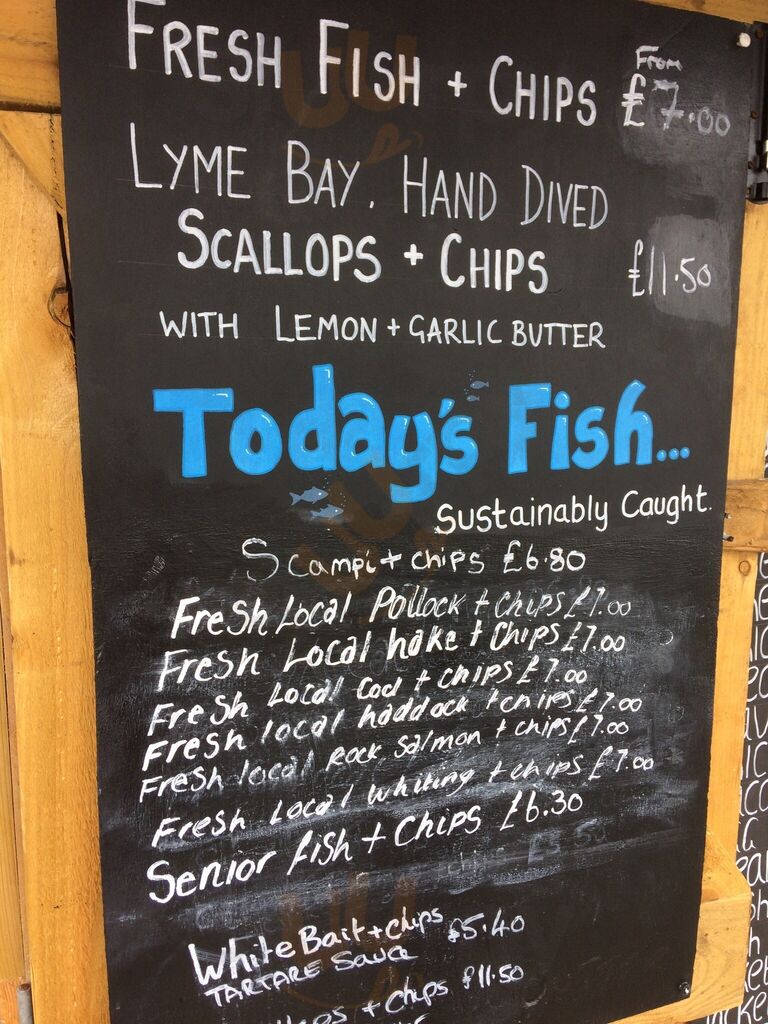 From
FRESH FISH + CHIPS £7.00
LYME BAY. HAND DIVED
SCALLOPS + CHIPS £11.50
WITH LEMON + GARLIC BUTTER
Today's Fish...
Sustainably Caught.
Scampi + chips £6.80
Fresh Local Pollock + Chips £7.00
Fresh Local hake + Chips £7.00
Fresh Local Cod + chips £7.00
Fresh local haddock + chips £7.00
Fresh local Rock Salmon + chips £7.00
Fresh Local Whiting + chips £7.00
Senior fish + Chips £6.30
White Bait + chips £5.40
TARTARE Sauce
+ chips £11.50